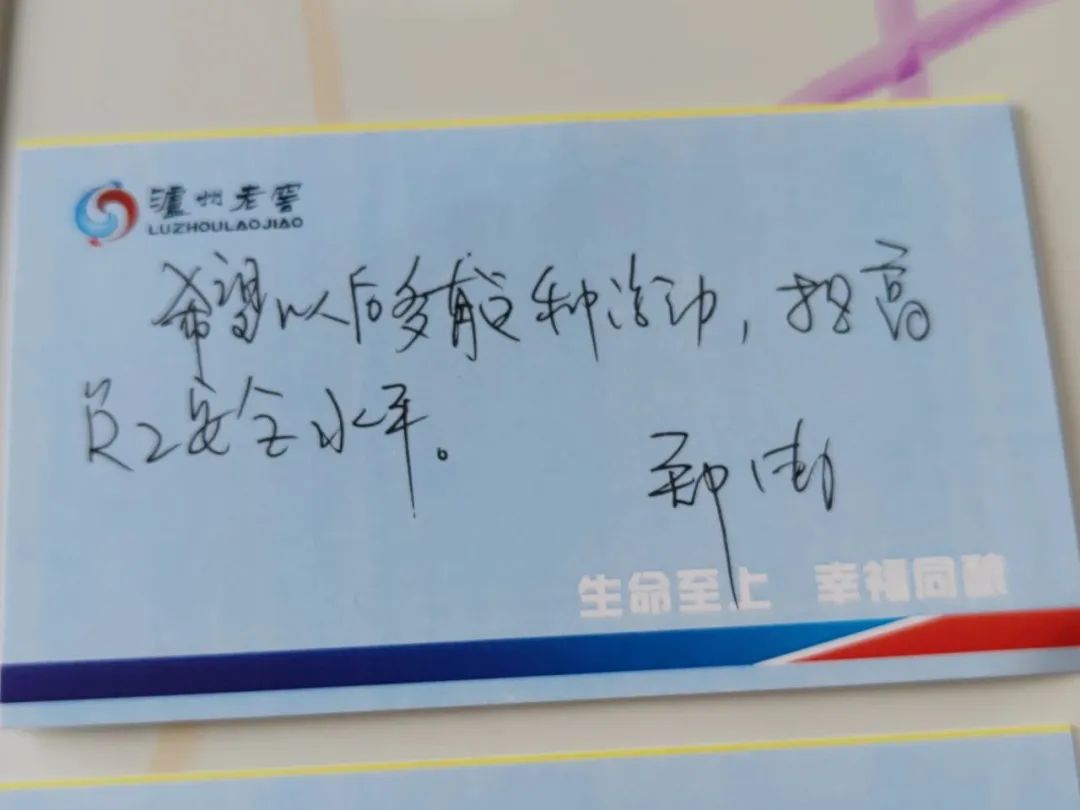 泸州老窖
LUZHOULAOJIAO
希望以后够多有这种活动,提高
员工安全水平。
郑
生命至上 幸福同酿